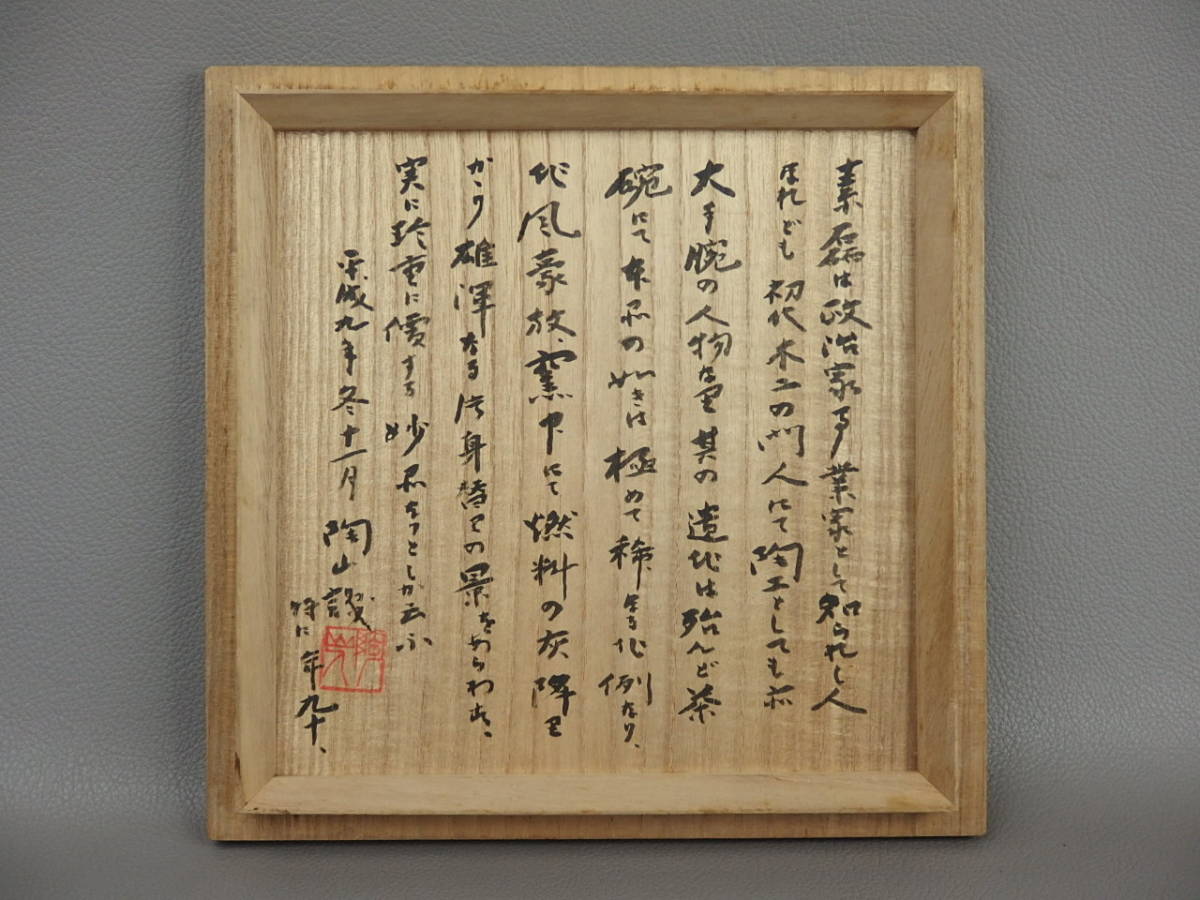 素磊は政治家事業家として知られし人
なれども初代木二の門人にて陶工としても亦
大手腕の人物な里其の遺作は殆んど茶
碗にて本品の如きは極めて稀なる作例なり、
作風豪放、窯中にて燃料の灰降里
かゝり雄渾なる片身替里の景をあらわす、
実に珍重に価する妙品なりとしか云ふ
平成九年冬十一月 陶山識
時に年九十、